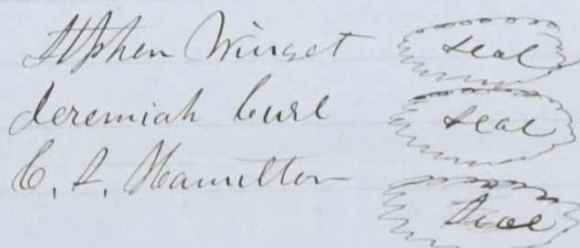 Stephen Winget seal
Jeremiah Curl seal
C. S. Hamilton seal